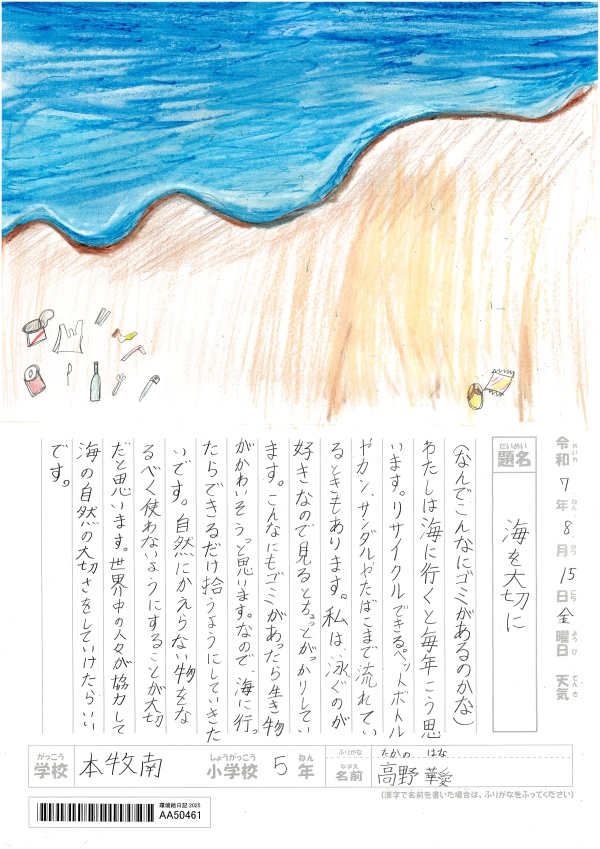 令和7年8月15日金曜日 天気
れいわ ねん がつ にち ようび てんき
だいめい
題名 海を大切に
(なんでこんなにゴミがあるのかな)
わたしは海に行くと毎年こう思
います。リサイクルできるペットボトル
やカン、サンダルやたばこまで流れてい
るときもあります。私は、泳ぐのが
好きなので見るとちょっとがっかりしてい
ます。こんなにもゴミがあったら生き物
がかわいそうっと思います。なので、海に行っ
たらできるだけ拾うようにしていきた
いです。自然にかえらない物をな
るべく使わないようにすることが大切
だと思います。世界中の人々が協力して
海の自然の大切さをしていけたらいい
です。
がっこう しょうがっこう ねん
学校 本牧南 小学校 5年
ふりがな たかの はな
なまえ
名前 高野 華愛
(漢字で名前を書いた場合は、ふりがなをふってください)
環境絵日記 2025
AA50461